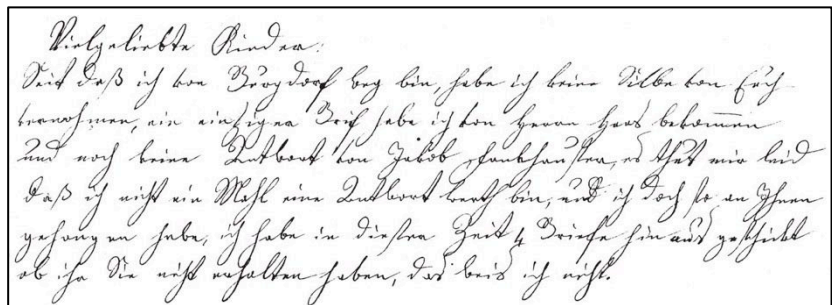 Vielgeliebte Kinder:
Seit daß ich von Burgdorf weg bin, habe ich keine Silbe von Euch
vernohmen, ein einziger Brief habe ich von Herrn Haas bekommen
und noch keine Antwort von Jakob Fankhauser, es thut mir leid
daß ich nicht ein Mahl eine Antwort werth bin, und ich doch so an Ihnen
gehangen habe, ich habe in dieser Zeit 4 Briefe hinaus geschickt
ob ihr Sie nicht erhalten haben, das weis ich nicht.